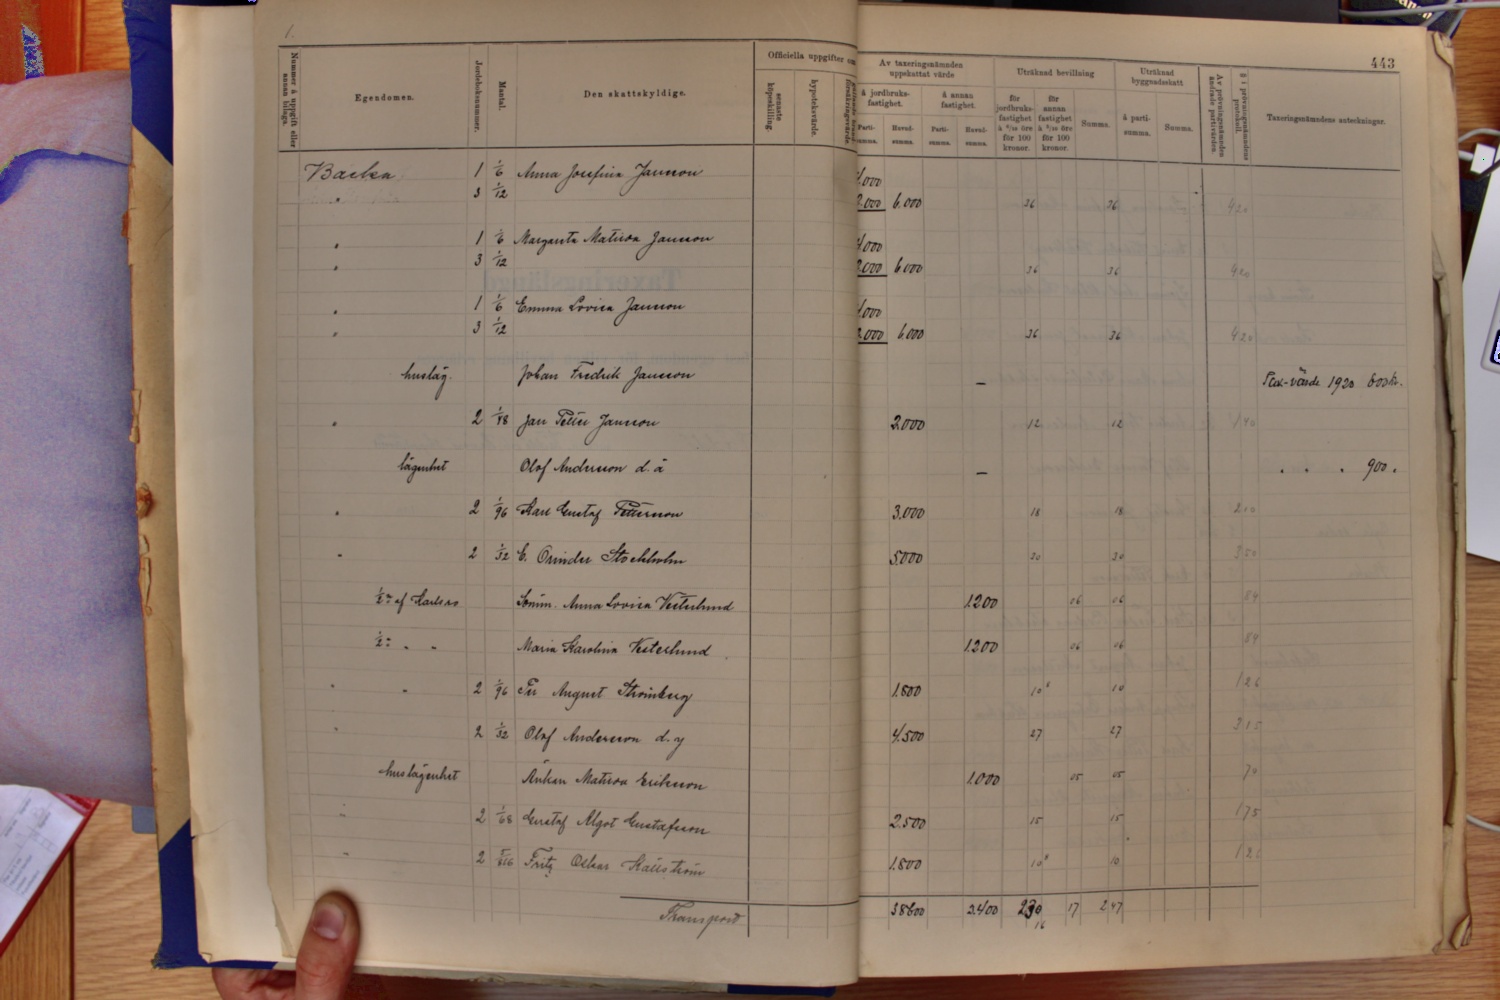 1.
443
Nummer å uppgift eller annan bilaga.
Egendomen.
Jordeboksnummer.
Mantal.
Den skattskyldige.
Officiella uppgifter om
senaste köpeskilling.
hypoteksvärde.
Av taxeringsnämnden uppskattat värde
å jordbruksfastighet.
å annan fastighet.
Parti-summa.
Huvud-summa.
Parti-summa.
Huvud-summa.
Uträknad bevillning
för jordbruksfastighet à 6/10 öre för 100 kronor.
för annan fastighet à 5/10 öre för 100 kronor.
Summa.
Uträknad byggnadsskatt
å parti-summa.
Summa.
Av prövningsnämnden
§ i prövningsnämndens protokoll.
Taxeringsnämndens anteckningar.
Backa 1 1/6 Anna Josefina Jansson 4.000
" 3 1/12 2.000 6.000 36 36 420
" 1 1/6 Margareta Matilda Jansson 4.000
" 3 1/12 2.000 6.000 36 36 420
" 1 1/6 Emma Lovisa Jansson 4.000
" 3 1/12 2.000 6.000 36 36 420
husläg. Johan Fredrik Jansson – Tax-värde 1920 600 kr.
" 2 1/48 Jan Petter Jansson 2.000 12 12 140
lägenhet Olof Andersson d. ä – " " " 900 "
" 2 1/96 Karl Gustaf Pettersson 3.000 18 18 210
" 2 1/32 E. Stockholm 5.000 30 30 350
1/2 af Karlsro Anna Lovisa Vesterlund 1.200 06 06 84
1/2 " " Maria Karolina Vesterlund 1.200 06 06 84
" " 2 1/96 Per August Strömberg 1.800 10 8 10 126
" 2 1/32 Olof Andersson d. y 4.500 27 27 315
huslägenhet Änkan Matilda Eriksson 1.000 05 05 70
" 2 Gustaf Algot Gustafsson 2.500 15 15 175
" 2 Fritz Oskar Källström 1.800 10 8 10 126
Transport 38600 3.400 230 17 247
16